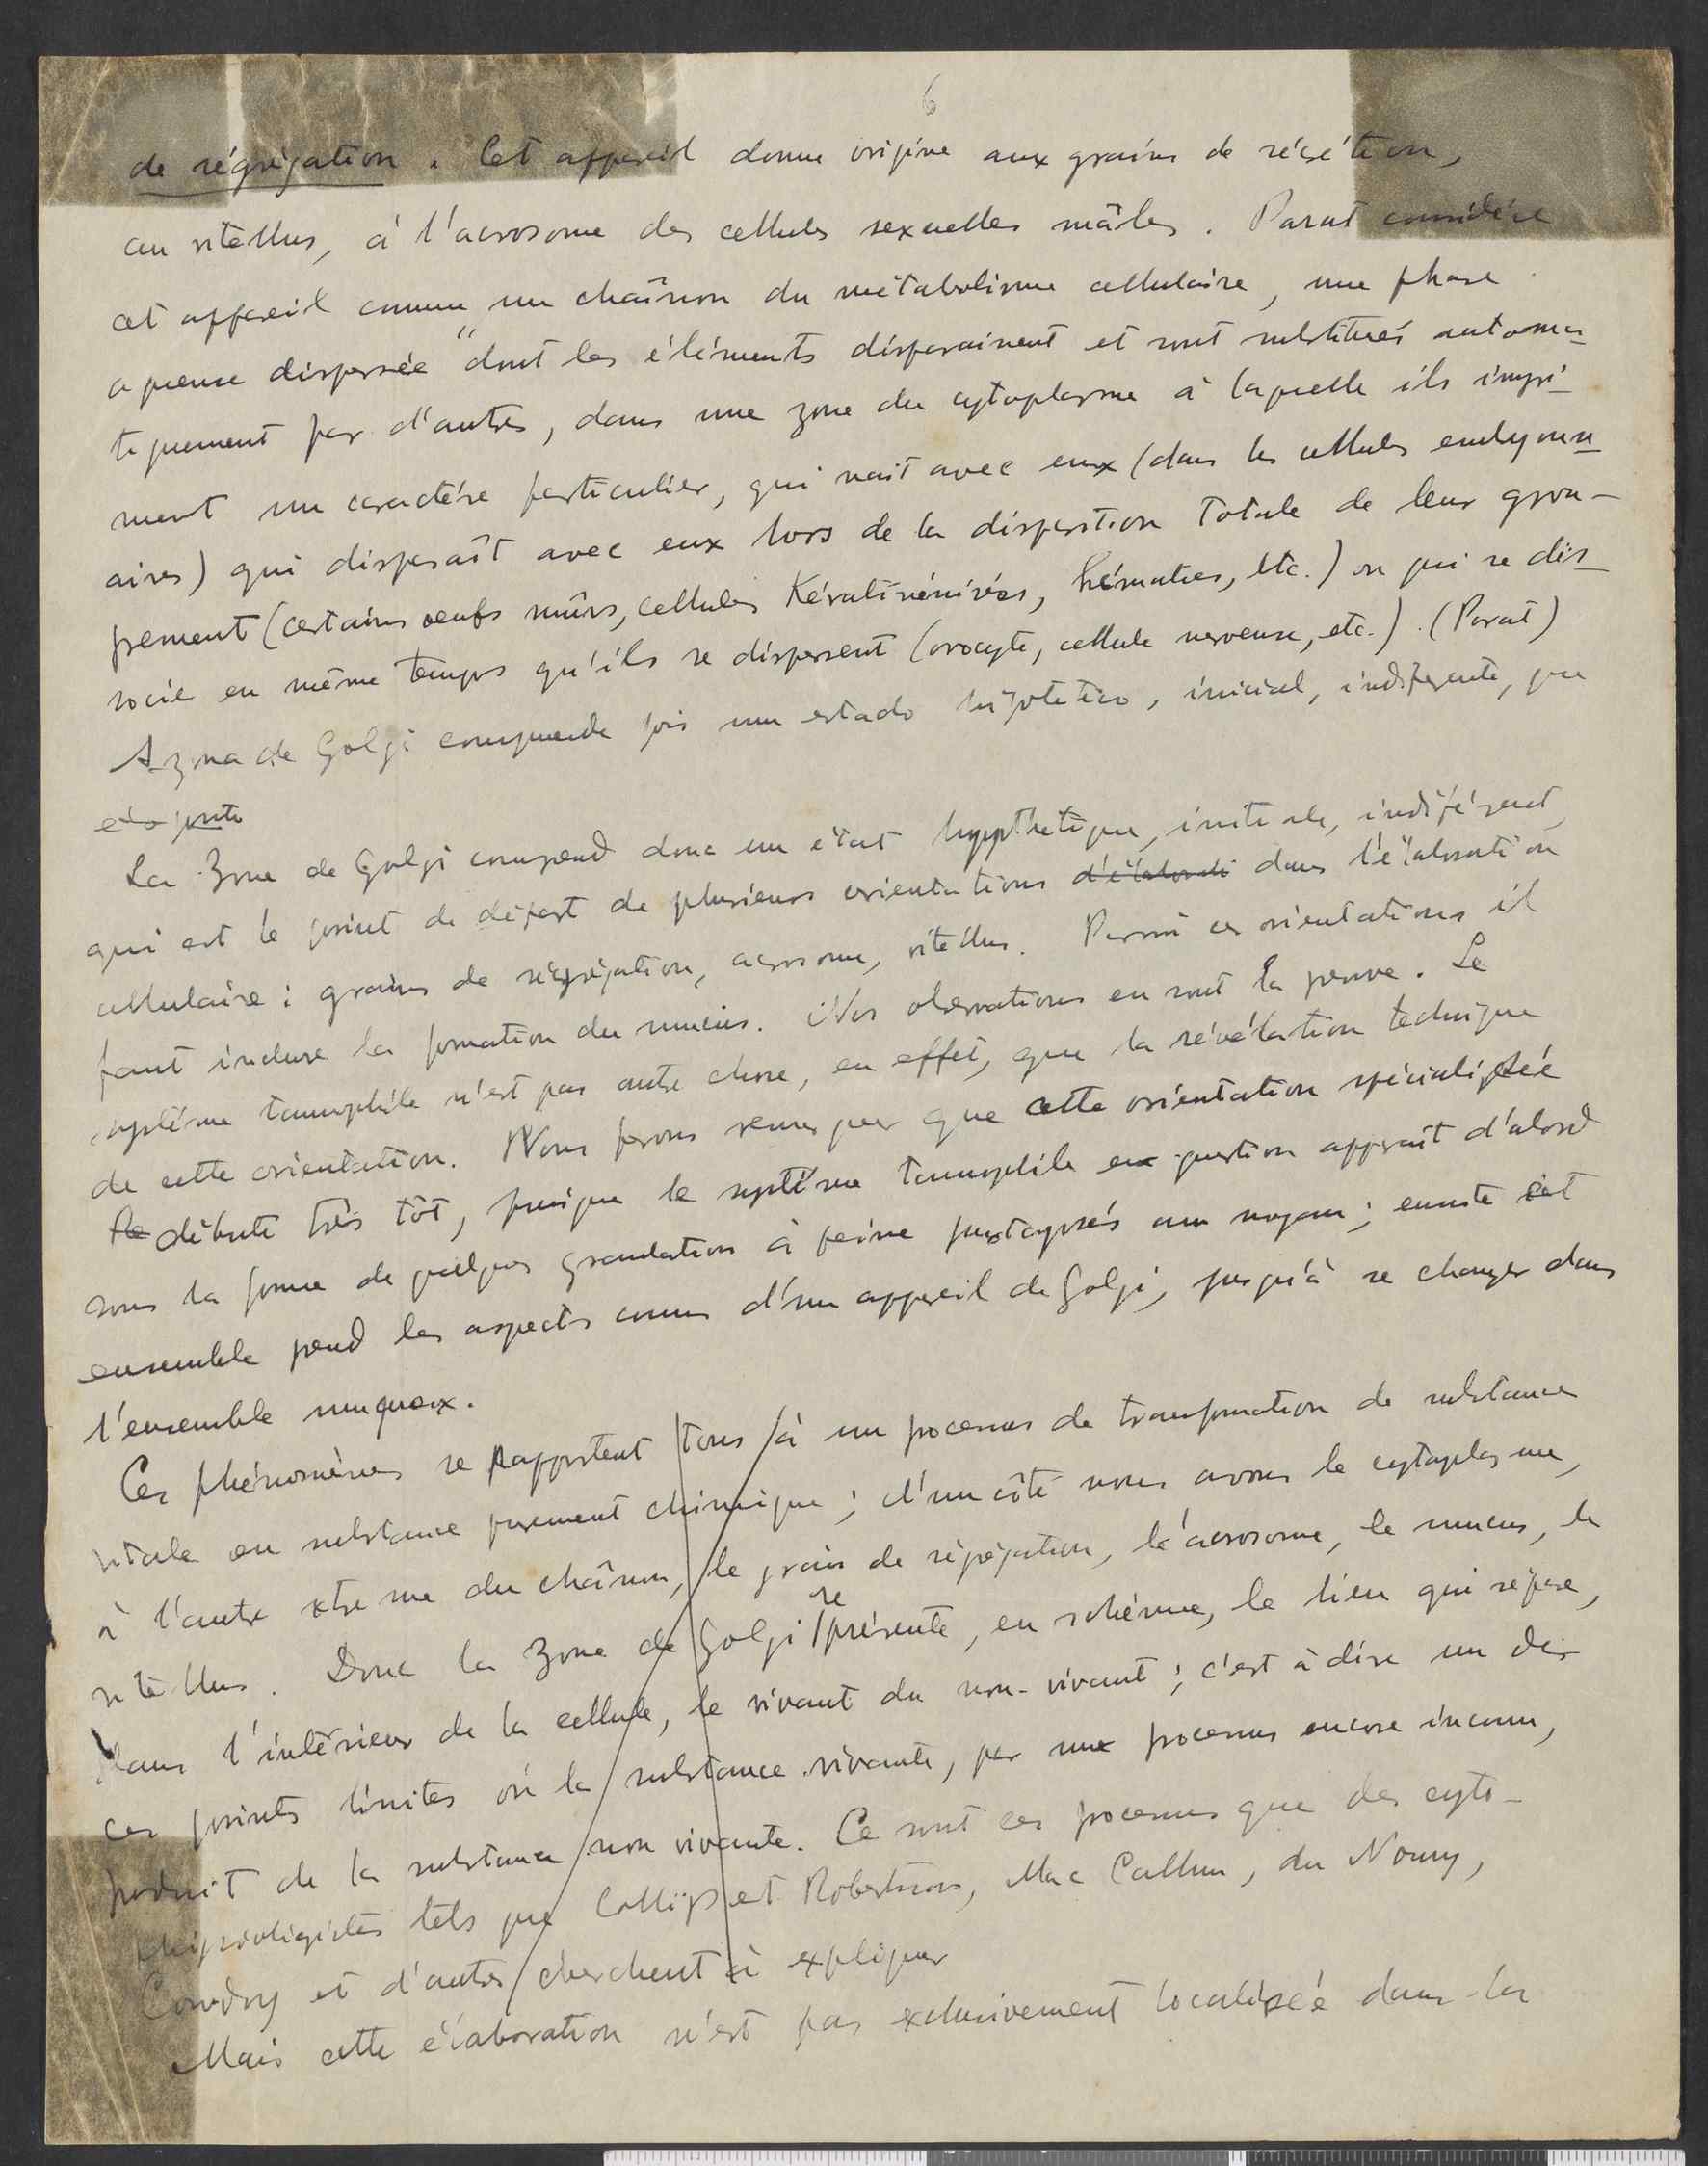 6
de ségrégation. Cet appareil donne origine aux grains de sécrétion,
au vitellus, à l'acrosome des cellules sexuelles mâles. Parat considère
cet appareil comme un chaînon du métabolisme cellulaire, une phase
aqueuse dispersée "dont les éléments disparaissent et sont substitués automa-
tiquement par d'autres, dans une zone du cytoplasme à laquelle ils impri-
ment un caractère particulier, qui nait avec eux (dans les cellules embryonn-
aires) qui disparaît avec eux lors de la disparition totale de leur grou-
pement (certains oeufs mûrs, cellules Kératinénisées, hématies, etc.) ou qui se dis-
socie en même temps qu'ils se dispersent (ovocyte, cellule nerveuse, etc.). (Parat)
A zona de Golgi compreende pois um estado hipotetico, inicial, indiferente, que
é o ponto
La Zone de Golgi comprend donc un état hypothetique, initiale, indifférent,
qui est le point de départ de plusieurs orientations d'élaborati dans l'élaboration
cellulaire: grains de ségrégation, acrosome, vitellus. Parmi ces orientations il
faut inclure la formation du mucus. Nos observations en sont la preuve. Le
système tannophile n'est pas autre chose, en effet, que la révélation technique
de cette orientation. Nous ferons remarquer que cette orientation spécialisée
se débute très tôt, puisque le système tannophile en question apparaît d'abord
sous la forme de quelques granulation à peine juxtaposés au noyau; ensuite cet
ensemble prend les aspects connus d'un appareil de Golgi, jusqu'à se changer dans
l'ensemble muqueux.
Ces phénomènes se rapportent tous à un processus de transformation de substance
vitale en substance purement chimique; d'un côté nous avons le cytoplasme,
à l'autre xtreme du chaînon, le grain de ségrégation, le acrosome, le mucus, le
vitellus. Donc la Zone de Golgi représente, en schéme, le lieu qui sépare,
dans l'intérieur de la cellule, le vivant du non-vivant; c'est à dire un des
ces points limites où la substance vivante, par un processus encore inconnu,
produit de la substance non vivante. Ce sont ces processus que des cyto-
phisiologistes tels que Collip et Robertson, Mac Callum, du Nouy,
Cowdry et d'autres cherchent à expliquer
Mais cette élaboration n'est pas exclusivement localisée dans la